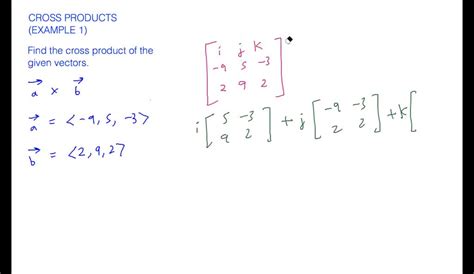 CROSS PRODUCTS
(EXAMPLE 1)
Find the cross product of the
given vectors.
a⃗ × b⃗
a⃗ = <-9, 5, -3>
b⃗ = <2, 9, 2>
[ i j k
-9 5 -3
2 9 2 ]
i [ 5 -3
9 2 ] + j [ -9 -3
2 2 ] + k [